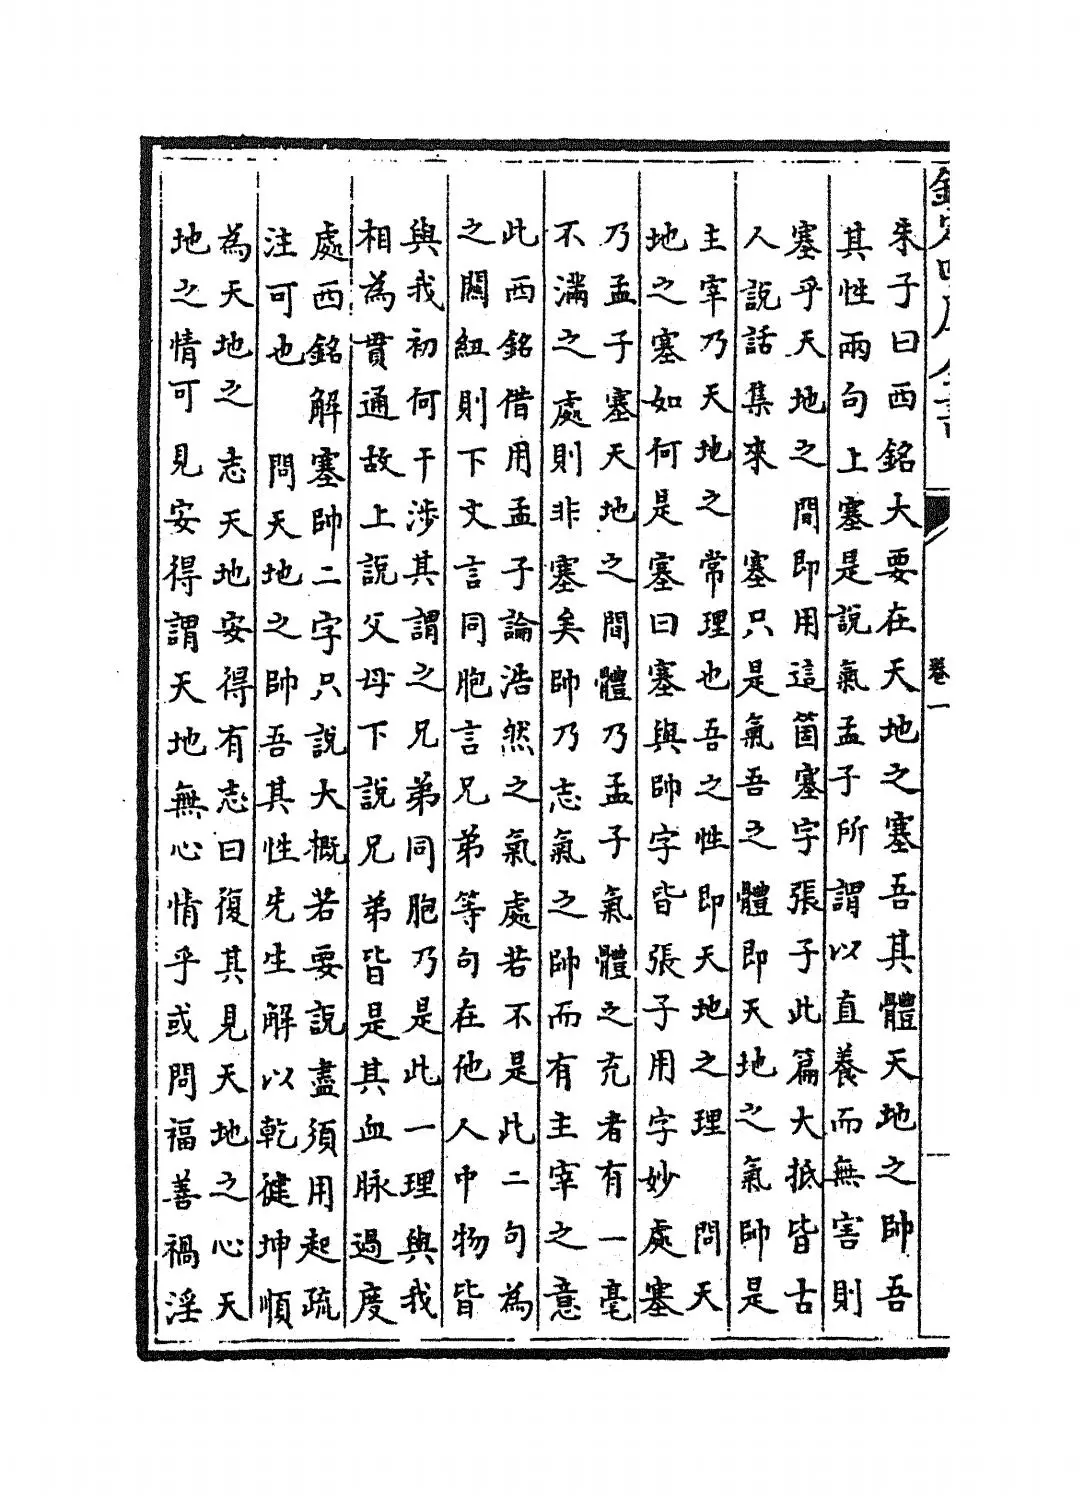 欽定四庫全書
卷一
朱子曰西銘大要在天地之塞吾其體天地之帥吾
其性兩句上塞是說氣孟子所謂以直養而無害則
塞乎天地之間即用這箇塞字張子此篇大抵皆古
人說話集來　塞只是氣吾之體即天地之氣帥是
主宰乃天地之常理也吾之性即天地之理　問天
地之塞如何是塞曰塞與帥字皆張子用字妙處塞
乃孟子塞天地之間體乃孟子氣體之充者有一毫
不滿之處則非塞矣帥乃志氣之帥而有主宰之意
此西銘借用孟子論浩然之氣處若不是此二句為
之關紐則下文言同胞言兄弟等句在他人中物皆
與我初何干涉其謂之兄弟同胞乃是此一理與我
相為貫通故上說父母下說兄弟皆是其血脉過度
處西銘解塞帥二字只說大概若要說盡須用起疏
注可也　問天地之帥吾其性先生解以乾健坤順
為天地之志天地安得有志曰復其見天地之心天
地之情可見安得謂天地無心情乎或問福善禍淫